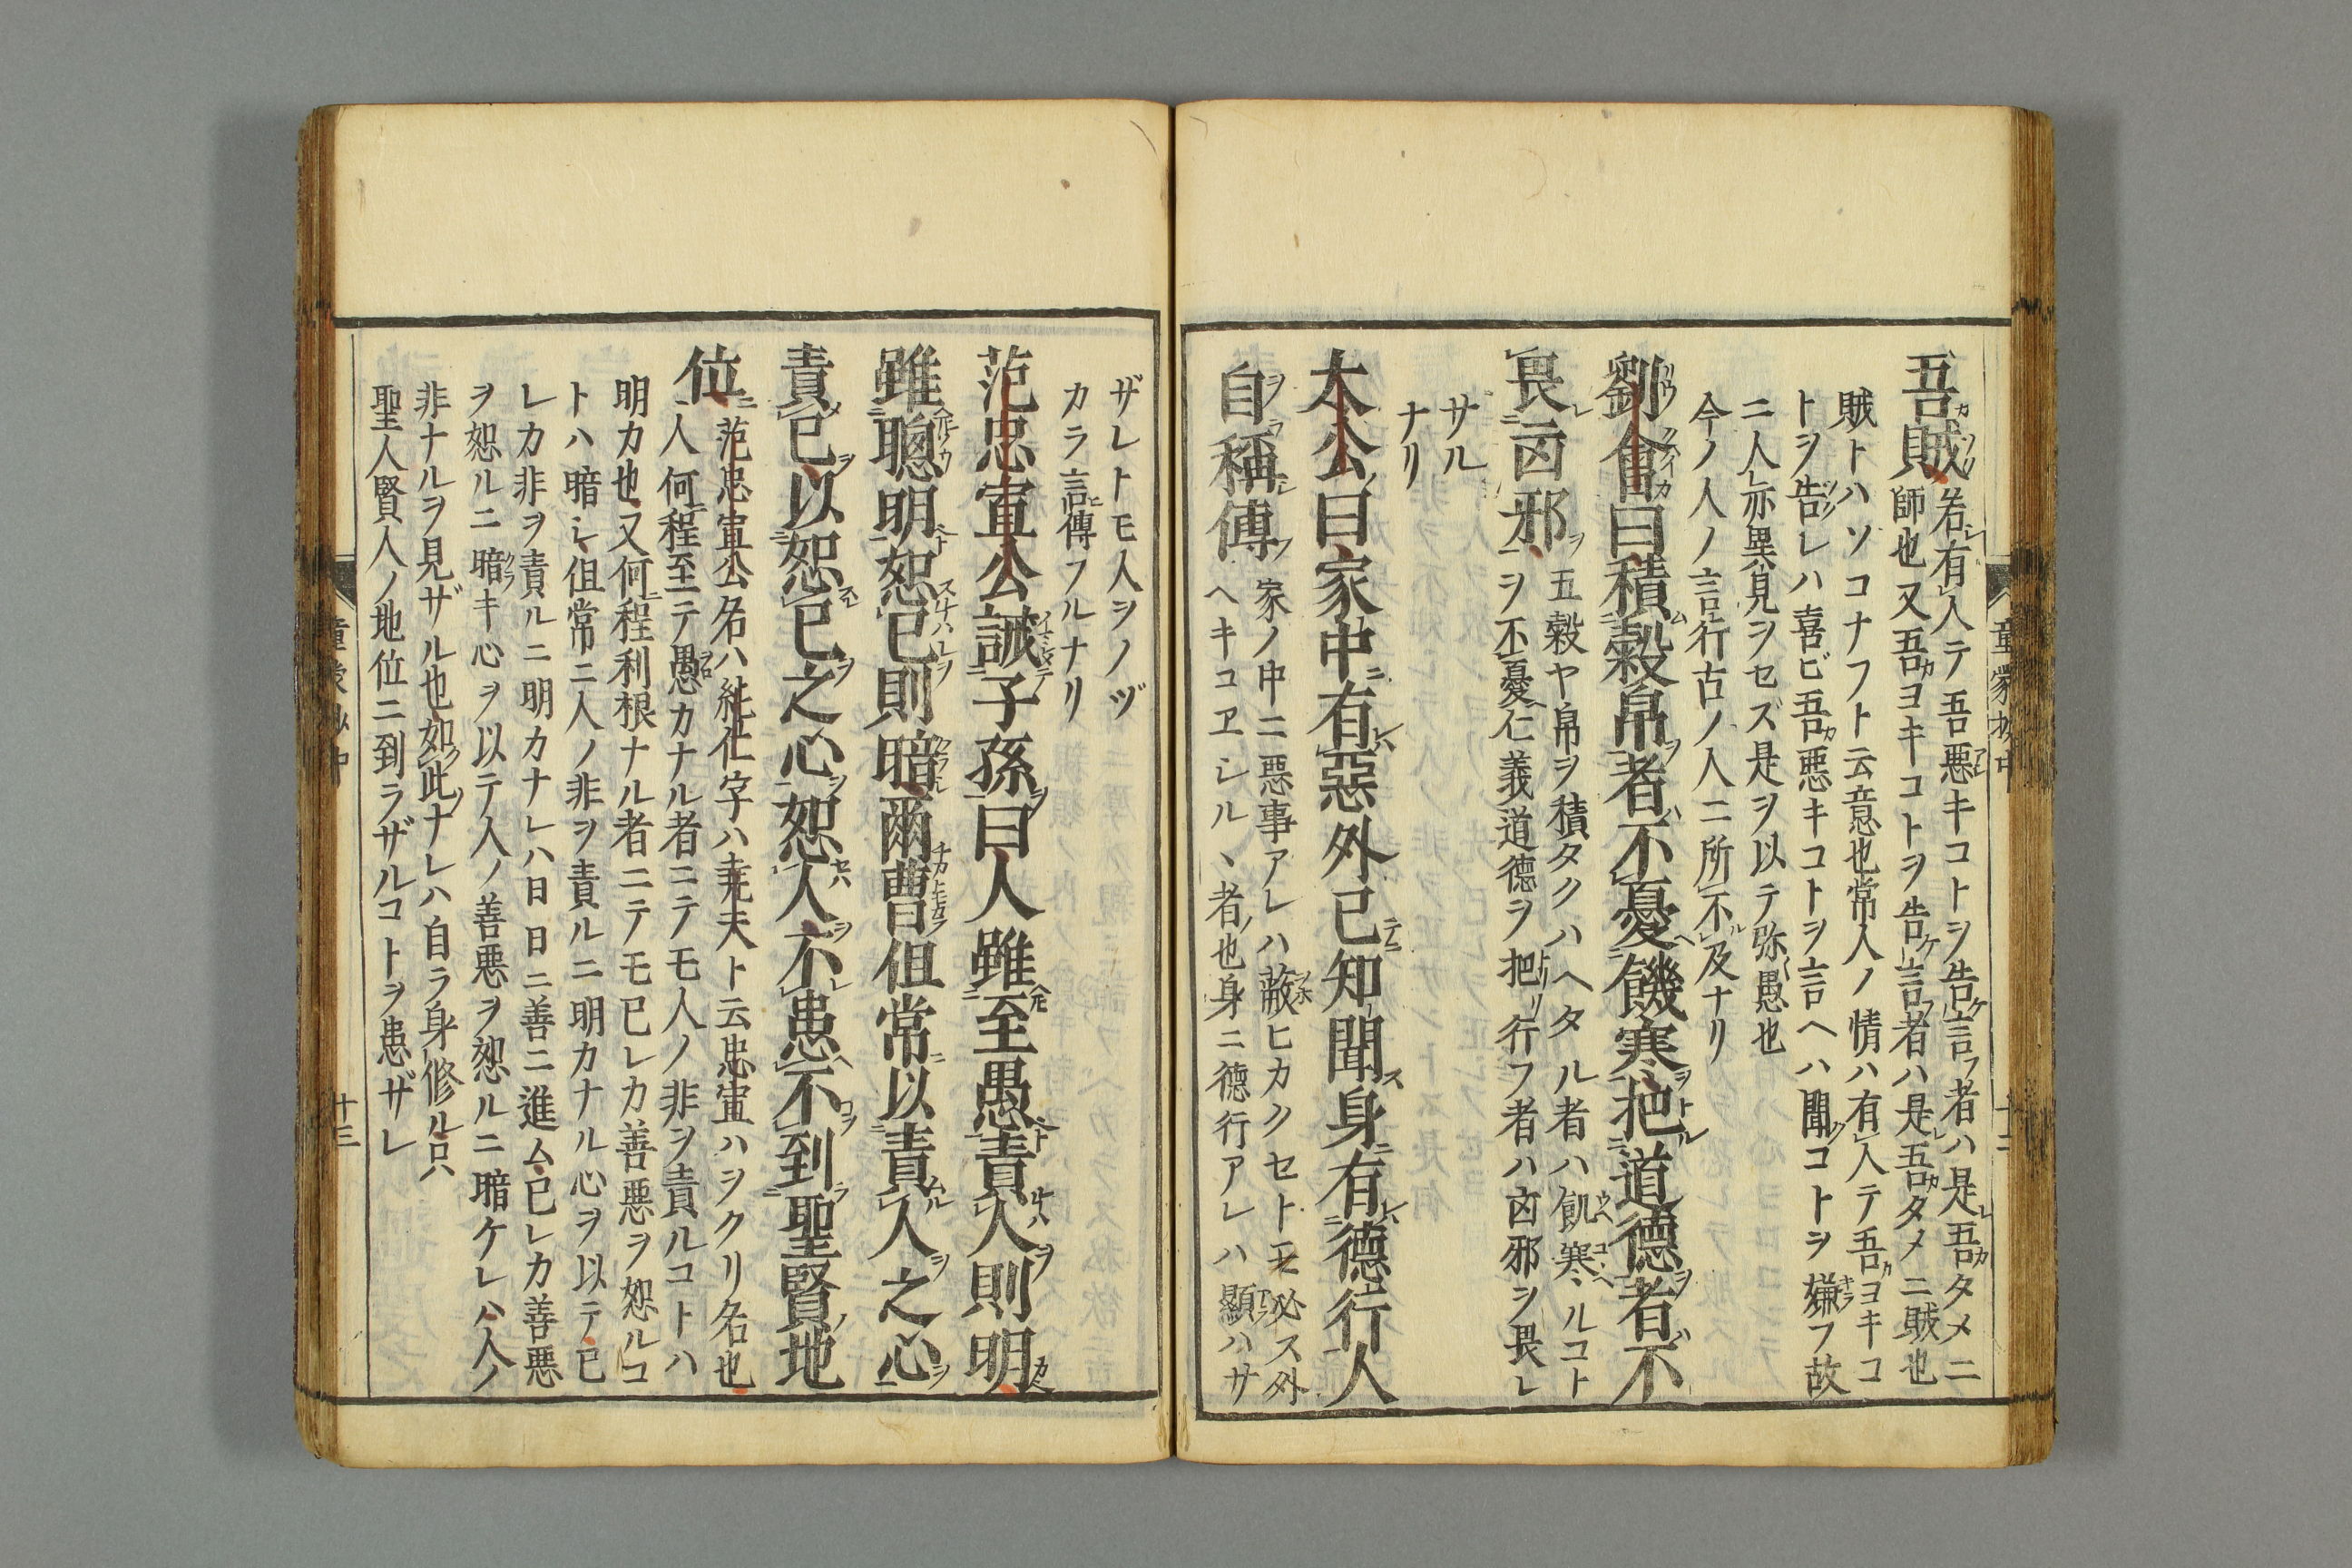 吾賊
若有人テ吾悪キコトヲ告言フ者ハ是吾カタメニ
師也又吾カヨキコトヲ告ケ言フ者ハ是吾カタメニ賊也
賊トハソコナフト云意也常人ノ情ハ有人テ吾カヨキコ
トヲ告レハ喜ビ吾カ悪キコトヲ言ヘハ聞クコトヲ嫌フ故
ニ人亦異見ヲセズ是ヲ以テ弥愚也
今ノ人ノ言行古ノ人ニ所不及ナリ
劉會曰積穀帛者不憂饑寒把道德者不
畏凶邪
五穀ヤ帛ヲ積タクハヘタル者ハ飢寒ルコト
ヲ不憂仁義道德ヲ把リ行フ者ハ凶邪ヲ畏レ
サル
ナリ
太公曰家中有惡外已知聞身有德行人
自稱傳
家ノ中ニ悪事アレハ蔽ヒカクセトモ必ス外
ヘキコヱシル丶者也身ニ德行アレハ顯ハサ
童蒙抄中
十二
ザレトモ人ヲノヅ
カラ言傳フルナリ
范忠宣公誡子孫曰人雖至愚責人則明
雖聰明恕已則暗爾曹但常以責人之心
責已以恕已之心恕人不患不到聖賢地
位
范忠宣公名ハ純仁字ハ尭夫ト云忠宣ハヲクリ名也
人何程至テ愚カナル者ニテモ人ノ非ヲ責ルコトハ
明カ也又何程利根ナル者ニテモ已レカ善悪ヲ恕ルコ
トハ暗シ但常ニ人ノ非ヲ責ルニ明カナル心ヲ以テ已
レカ非ヲ責ルニ明カナレハ日日ニ善ニ進ム已レカ善悪
ヲ恕ルニ暗キ心ヲ以テ人ノ善悪ヲ恕ルニ暗ケレハ人ノ
非ナルヲ見ザル也如此ナレハ自ラ身修ル只
聖人賢人ノ地位ニ到ラザルコトヲ患ザレ
童蒙抄中
十三